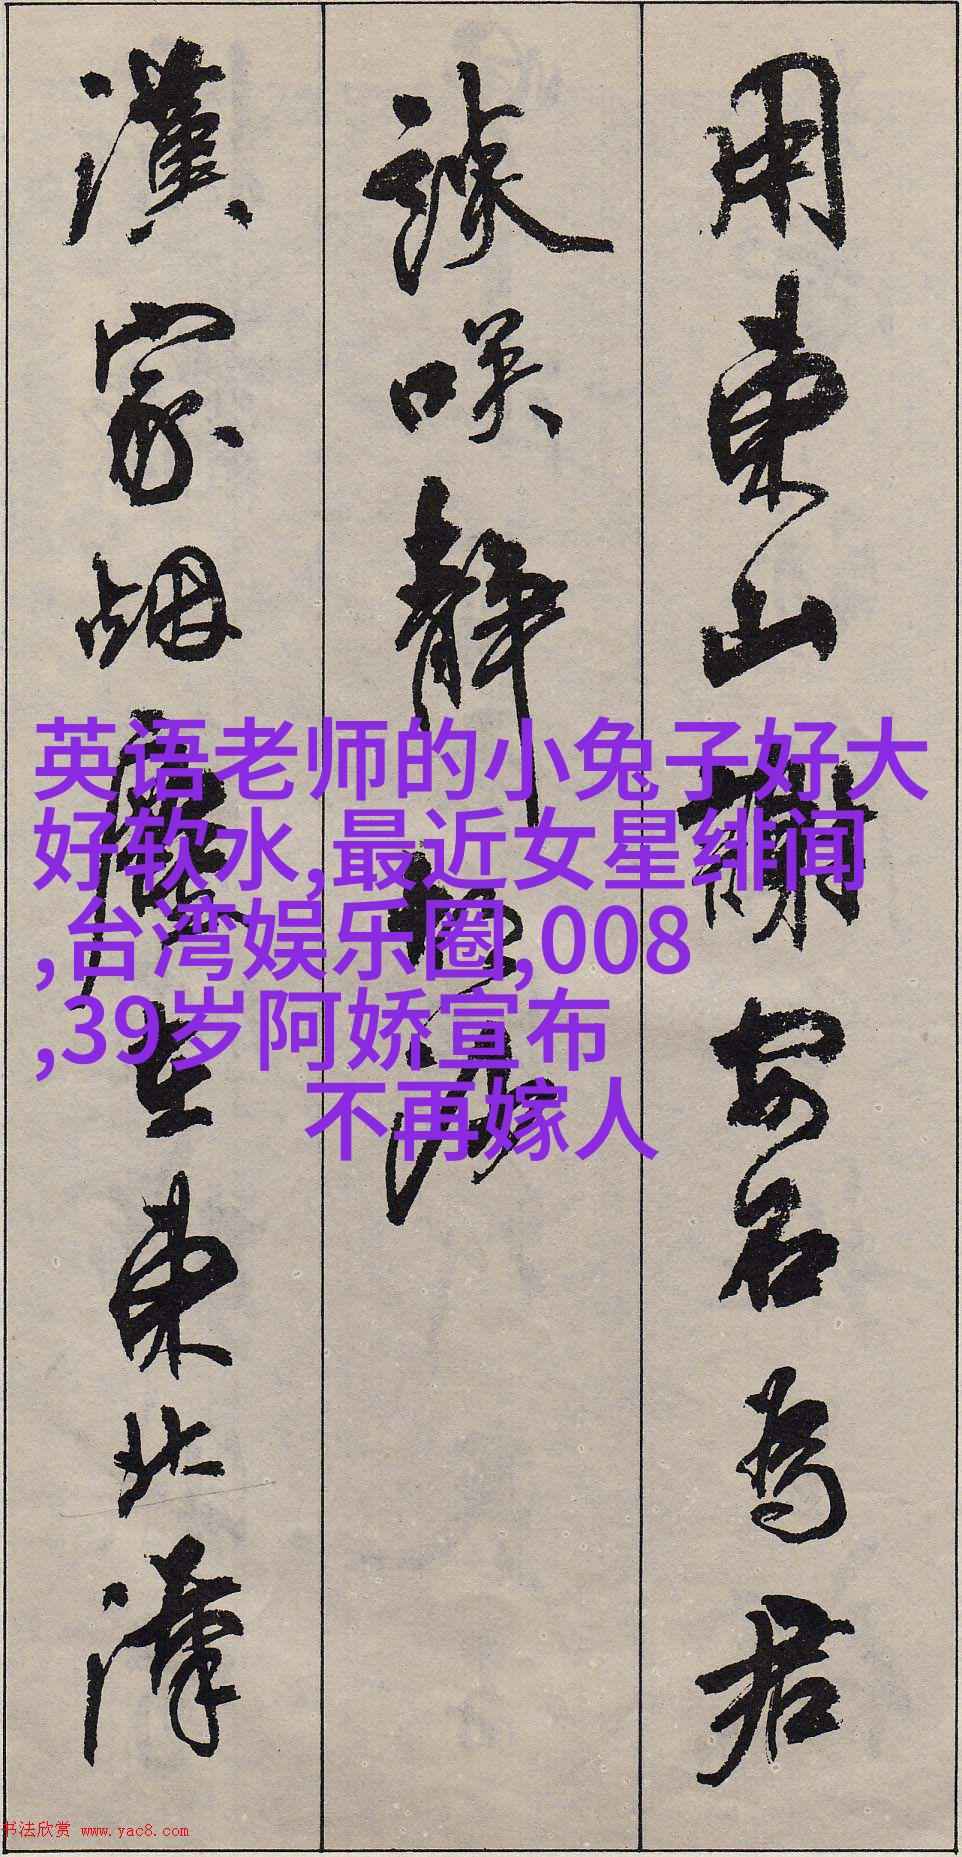 用東山謝安石為君
談笑静胡沙
漢家烟塵在東北漢
英语老师的小兔子好大
好软水,最近女星绯闻
,台湾娱乐圈,008
,39岁阿娇宣布
不再嫁人
书法欣赏 www.yac8.com